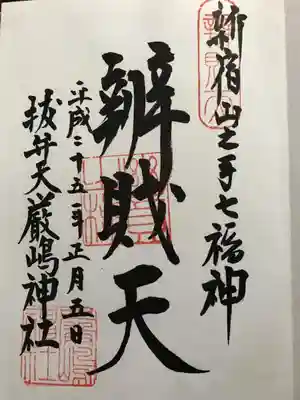 新宿山之手七福神
辨財天
平成二十五年正月五日
抜弁天厳嶋神社